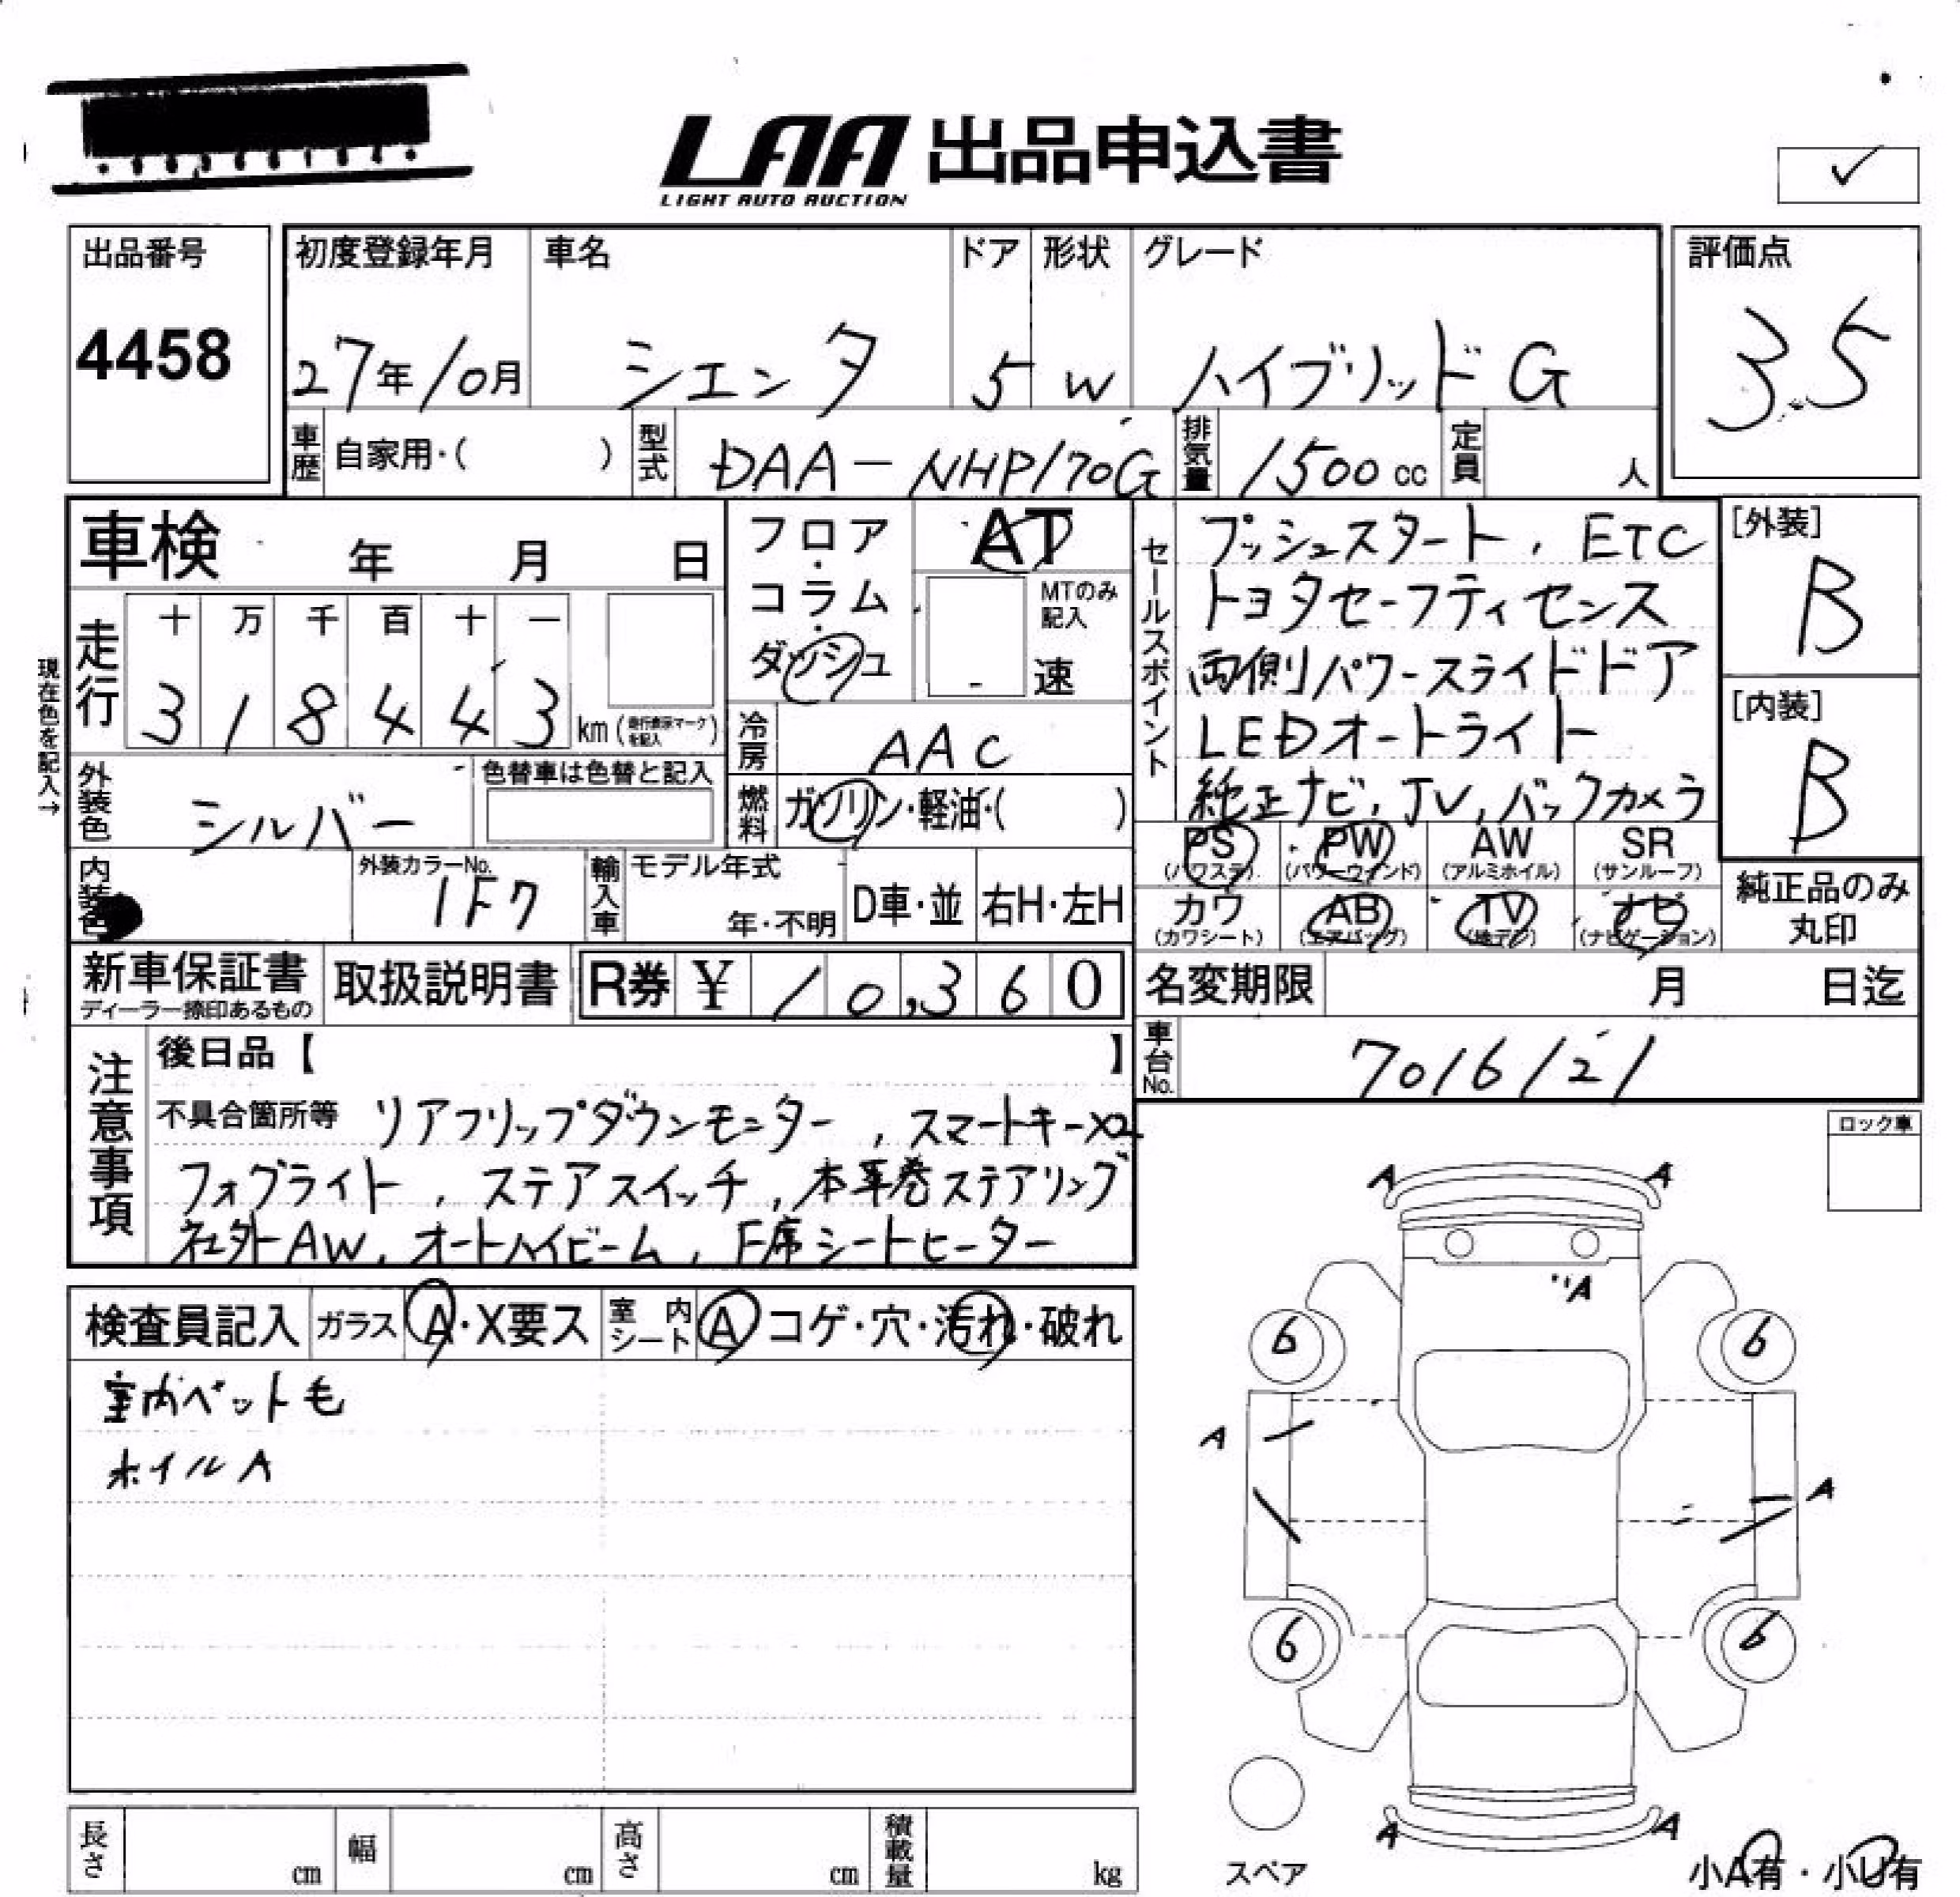 LAA 出品申込書
LIGHT AUTO AUCTION
出品番号
4458
初度登録年月
27年10月
車名
シエンタ
ドア
5
形状
W
グレード
ハイブリッドG
評価点
3.5
車歴 自家用・( )
型式 DAA-NHP170G
排気量 1500cc
定員 人
車検 年 月 日
現在色を記入→
走行
十 万 千 百 十 一
3 1 8 4 4 3 km(走行表示マークを記入)
フロア・コラム・ダッシュ
AT
MTのみ記入
速
冷房 AAC
燃料 ガソリン・軽油・( )
外装色 シルバー
色替車は色替と記入
内装色
外装カラーNo.
1F7
輸入車
モデル年式
年・不明
D車・並
右H・左H
セールスポイント
プッシュスタート, ETC
トヨタセーフティセンス
両側パワースライドドア
LEDオートライト
純正ナビ, TV, バックカメラ
[外装]
B
[内装]
B
PS (パワステ)
PW (パワーウィンド)
AW (アルミホイル)
SR (サンルーフ)
カワ (カワシート)
AB (エアバッグ)
TV (地デジ)
ナビ (ナビゲーション)
純正品のみ
丸印
新車保証書
ディーラー捺印あるもの
取扱説明書
R券 ¥10,360
名変期限 月 日迄
車台No. 7016121
注意事項
後日品【 】
不具合箇所等 リアフリップダウンモニター, スマートキーX2
フォグライト, ステアスイッチ, 本革巻ステアリング
社外AW, オートハイビーム, F席シートヒーター
ロック車
検査員記入
ガラス A・X要ス
室内シート A コゲ・穴・汚れ・破れ
室内ペット毛
ホイルA
A A
A
6 6
A
A
6 6
A A
スペア
小A有・小U有
長さ cm
幅 cm
高さ cm
積載量 kg